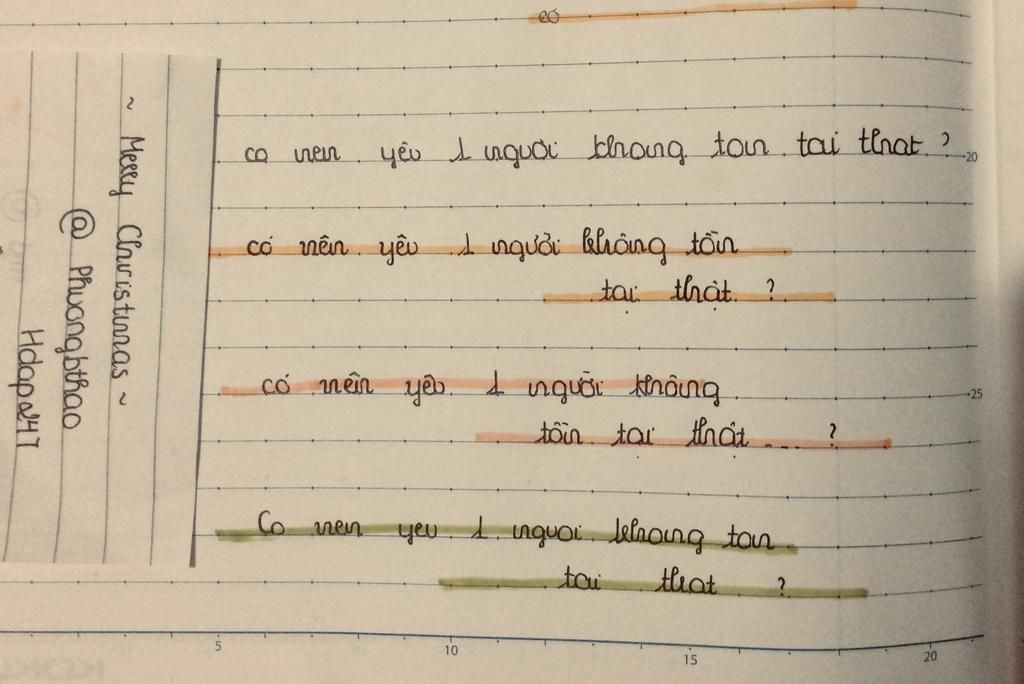 có
co nen yêu 1 nguoi khong ton tai that ?
20
có nên yêu 1 người không tồn
tại thật ?
có nên yêu 1 người không
25
tồn tại thật .... ?
Co nen yeu 1 nguoi khong ton
tai that ?
5 10 15 20
~ Merry Christmas ~
@ Phuongbthao